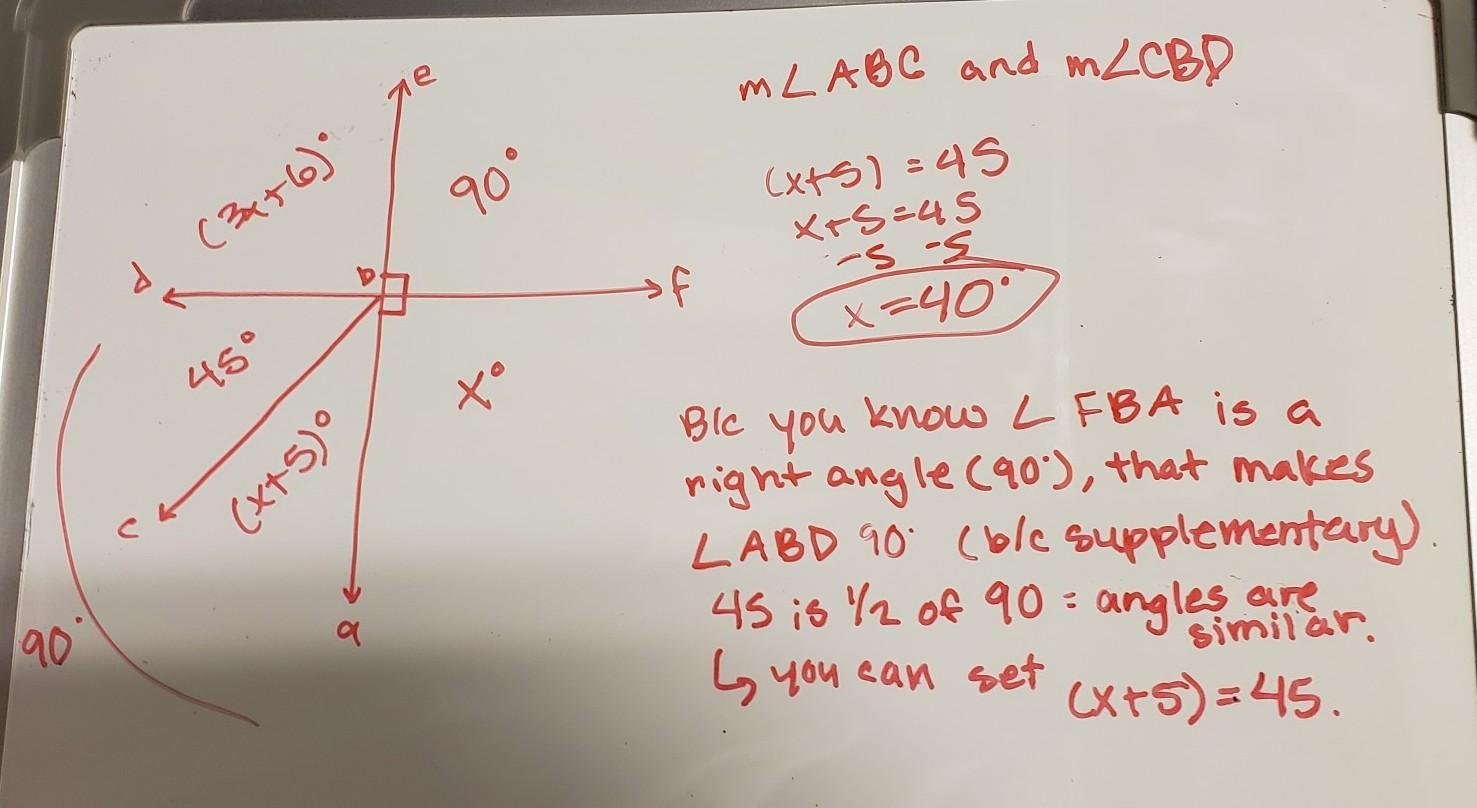 e
(3x+6)°
90°
d
b
f
45°
x°
c
(x+5)°
a
90°
m∠ABC and m∠CBD
(x+5) = 45
x+5=45
-5 -5
x=40°
B/c you know ∠ FBA is a
right angle (90°), that makes
∠ABD 90° (b/c supplementary).
45 is 1/2 of 90 = angles are
similar.
↳ you can set (x+5)=45.